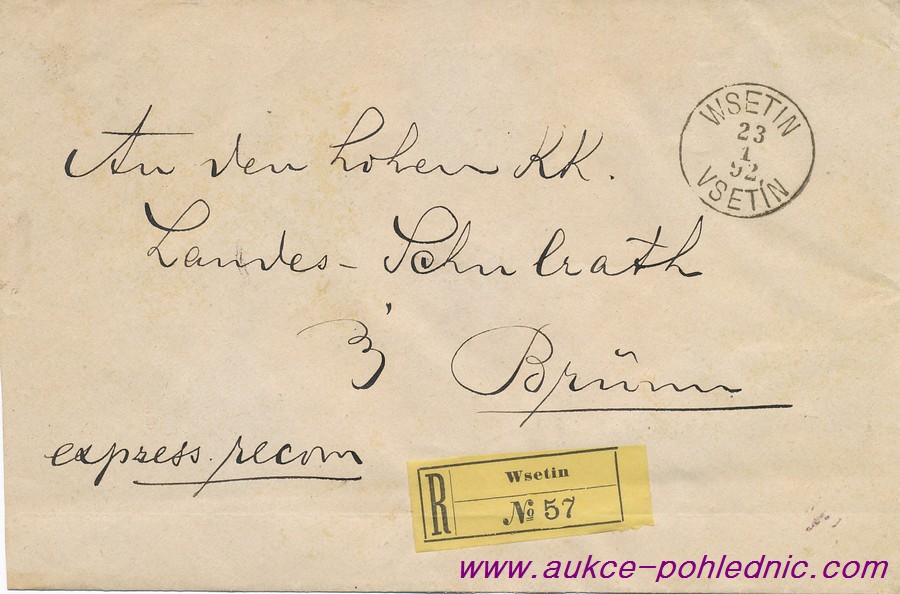 WSETIN
23
1
92
VSETÍN
An den hohen KK.
Landes-Schulrath
Brünn
express. recom
R
Wsetin
№ 57
www.aukce-pohlednic.com